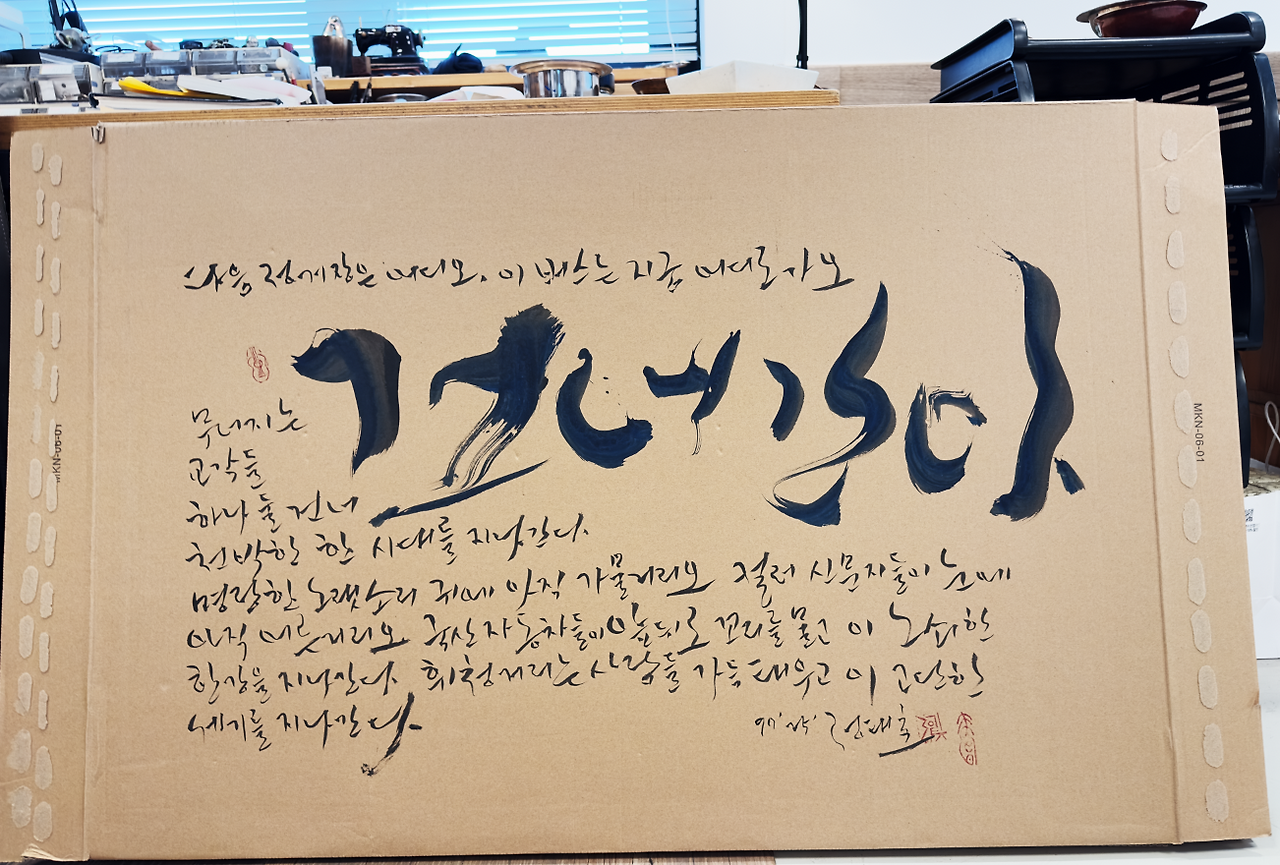 다음 정거장은 어디오, 이 버스는 지금 어디로 가오
건너간다
무너지는
교각들
하나 둘 건너
천박한 한 시대를 지나간다.
명랑한 노랫소리 귀에 아직 가물거리오 컬러 신문지들이 눈에
아직 어른거리오 국산 자동차들이 앞뒤로 꼬리를 물고 이 노쇠한
한강을 지나간다. 휘청거리는 사람들 가득 태우고 이 고단한
세기를 지나간다.
97' 작. 정태춘
MKN-06-01
MKN-06-01